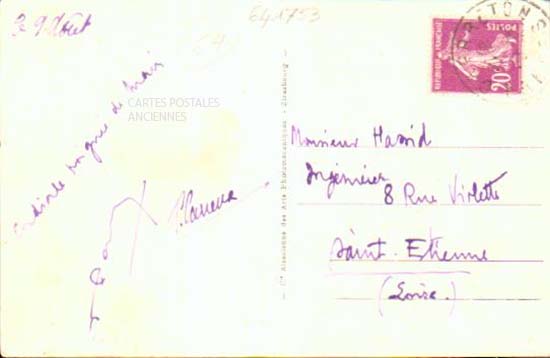 le 9 Août
E41753
64
cordiale poignée de main
CARTES POSTALES
ANCIENNES
Cie Alsacienne des Arts Photomécaniques - Strasbourg
REPUBLIQUE FRANÇAISE
POSTES
20
Monsieur Hassid
Ingénieur
8 Rue Violette
Saint-Etienne
(Loire.)